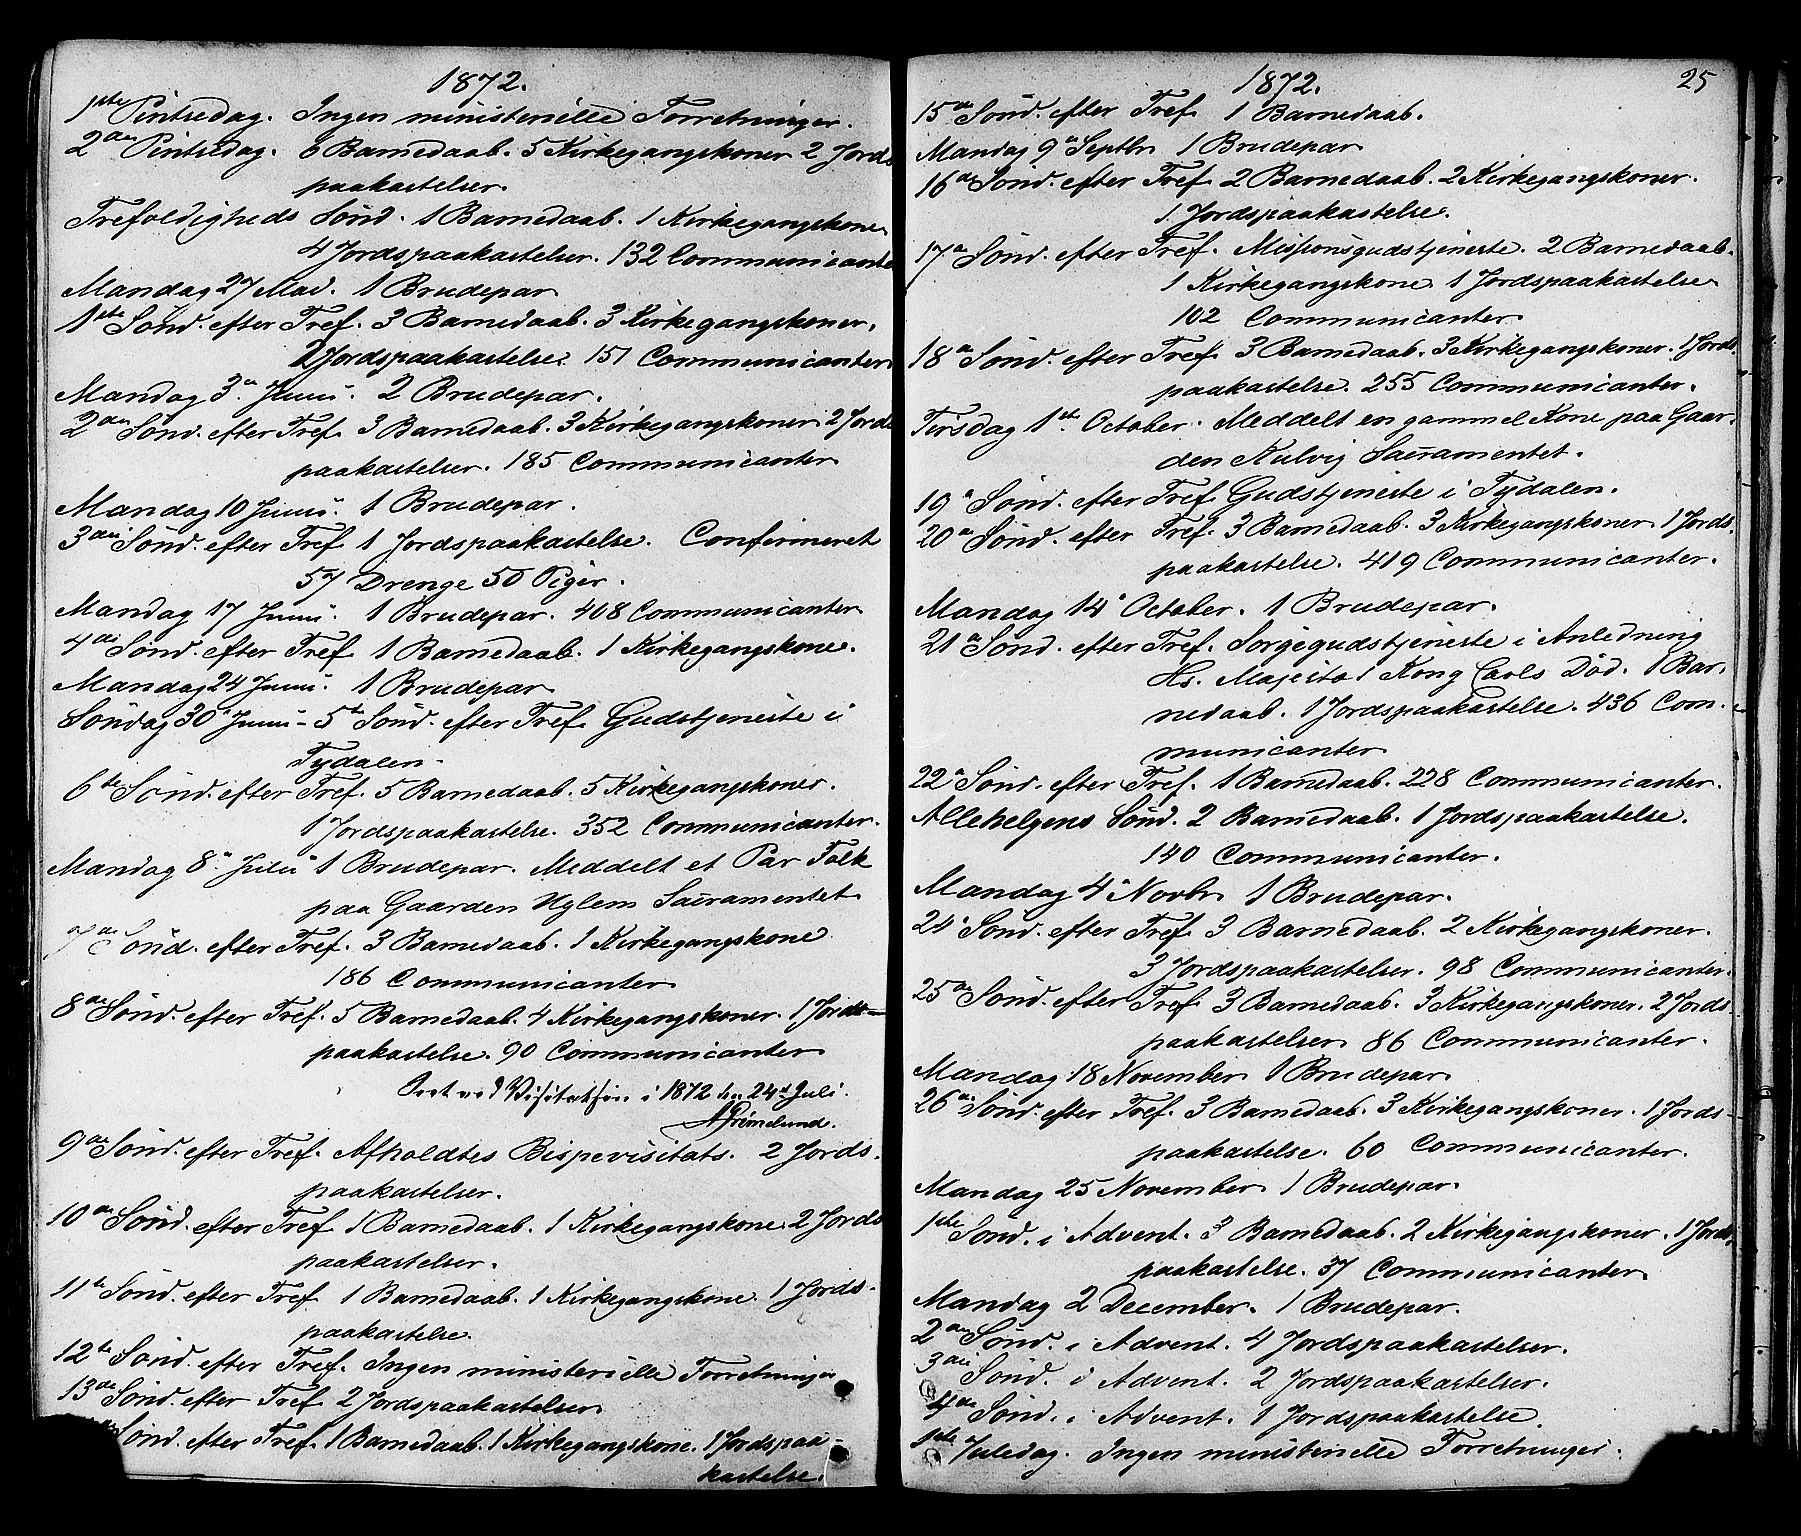 1872.
1ste Pintsedag. Ingen ministerielle Forretninger.
2den Pintsedag. 6 Barnedaab. 5 Kirkegangskoner 2 Jords
paakastelser.
Trefoldigheds Sønd. 1 Barnedaab. 1 Kirkegangskone
4 Jordspaakastelser. 132 Communicante
Mandag 27 Mai. 1 Brudepar
1ste Sønd. efter Tref. 3 Barnedaab. 3 Kirkegangskoner.
2 Jordspaakastelse. 151 Communicanter
Mandag 3die Juni. 2 Brudepar.
2den Sønd. efter Tref. 3 Barnedaab. 3 Kirkegangskoner 2 Jords
paakastelser. 185 Communicanter
Mandag 10 Juni. 1 Brudepar.
3die Sønd. efter Tref 1 Jordspaakastelse. Confirmeret
57 Drenge 50 Piger.
Mandag 17 Juni. 1 Brudepar. 408 Communicanter
4de Sønd. efter Tref 1 Barnedaab. 1 Kirkegangskone.
Mandag 24 Juni. 1 Brudepar
Søndag 30 Juni - 5te Sønd. efter Tref. Gudstjeneste i
Tydalen-
6te Sønd. efter Tref. 5 Barnedaab. 5 Kirkegangskoner.
1 Jordspaakastelse. 352 Communicanter.
Mandag 8de Juli 1 Brudepar. Meddelt et Par Folk
paa Gaarden Uglem Sacramentet
7de Sønd. efter Tref. 3 Barnedaab. 1 Kirkegangskone
186 Communicanter
8de Sønd. efter Tref. 5 Barnedaab. 4 Kirkegangskoner. 1 Jords-
paakastelse. 90 Communicanter
Seet ved Visitatsen i 1872 den 24de Juli.
A Grimelund.
9de Sønd. efter Tref. Afholdtes Bispevisitats. 2 Jords.
paakastelser.
10de Sønd. efter Tref 1 Barnedaab. 1 Kirkegangskone. 2 Jords
paakastelser.
11te Sønd. efter Tref 1 Barnedaab. 1 Kirkegangskone. 1 Jords-
paakastelse.
12te Sønd. efter Tref. Ingen ministerielle Forretninger
13de Sønd. efter Tref 2 Jordspaakastelser
Sønd. efter Tref. 1 Barnedaab. 1 Kirkegangskone. 1 Jordspaa-
kastelse.
1872.
25
15de Sønd. efter Tref 1 Barnedaab.
Mandag 9de Septbr 1 Brudepar
16de Sønd. efter Tref 2 Barnedaab. 2 Kirkegangskoner.
1 Jordspaakastelse.
17de Sønd. efter Tref. Missionsgudstjeneste. 2 Barnedaab.
1 Kirkegangskone 1 Jordspaakastelse
102 Communicanter
18de Sønd. efter Tref 3 Barnedaab. 3 Kirkegangskoner. 1 Jords.
paakastelse. 255 Communicanter.
Tirsdag 1ste October. Meddelt en gammel Kone paa Gaar.
den Kulvig Sacramentet.
19de Sønd. efter Tref Gudstjeneste i Tydalen.
20de Sønd. efter Tref. 3 Barnedaab. 3 Kirkegangskoner 1 Jords.
paakastelse. 419 Communicanter.
Mandag 14de October. 1 Brudepar.
21de Sønd. efter Tref. Sørgegudstjeneste i Anledning
Hs. Majestæt Kong Carls Død. 1 Bar.
nedaab. 1 Jordspaakastelse. 436 Com.
municanter
22de Sønd. efter Tref. 1 Barnedaab. 228 Communicanter.
Allehelgens Sønd. 2 Barnedaab. 1 Jordspaakastelse.
140 Communicanter.
Mandag 4de Novbr 1 Brudepar.
24de Sønd. efter Tref 3 Barnedaab. 2 Kirkegangskoner.
3 Jordspaakastelser. 98 Communicanter.
25de Sønd. efter Tref 3 Barnedaab. 3 Kirkegangskoner. 2 Jords.
paakastelser 86 Communicanter.
Mandag 18 November 1 Brudepar
26de Sønd. efter Tref. 3 Barnedaab. 3 Kirkegangskoner. 1 Jords-
paakastelse. 60 Communicanter.
Mandag 25 November 1 Brudepar.
1ste Sønd. i Advent. 3 Barnedaab. 2 Kirkegangskoner. 1 Jords.
paakastelse. 37 Communicanter.
Mandag 2 December. 1 Brudepar.
2den Sønd. i Advent. 4 Jordspaakastelser.
3die Sønd. i Advent. 2 Jordspaakastelser.
4de Sønd. i Advent. 1 Jordspaakastelse.
1ste Juledag. Ingen ministerielle Forretninger.